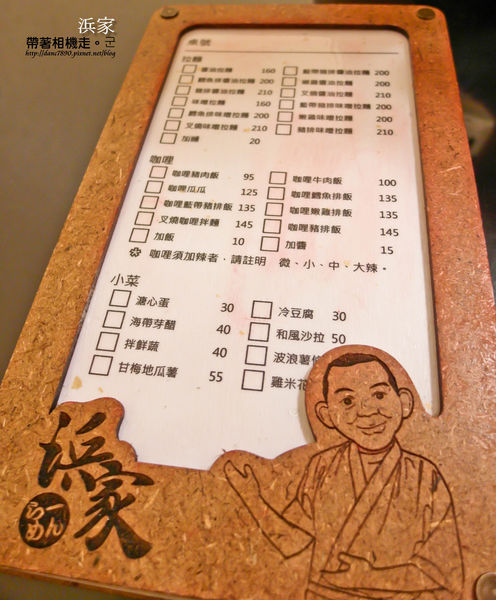 浜家
帶著相機走。
http://danc7890.pixnet.net/blog
桌號
拉麵
醬油拉麵 160
鱈魚排醬油拉麵 200
雞排醬油拉麵 210
味噌拉麵 160
鱈魚排味噌拉麵 200
叉燒味噌拉麵 210
加麵 20
藍帶豬排醬油拉麵 200
嫩雞醬油拉麵 200
叉燒醬油拉麵 210
藍帶豬排味噌拉麵 200
嫩雞味噌拉麵 200
豬排味噌拉麵 210
咖哩
咖哩豬肉飯 95
咖哩瓜瓜 125
咖哩藍帶豬排飯 135
叉燒咖哩拌麵 145
加飯 10
咖哩牛肉飯 100
咖哩鱈魚排飯 135
咖哩嫩雞排飯 135
咖哩豬排飯 145
加醬 15
咖哩須加辣者,請註明 微、小、中、大辣。
小菜
溏心蛋 30
海帶芽醋 40
拌鮮蔬 40
甘梅地瓜薯 55
冷豆腐 30
和風沙拉 50
波浪薯條
雞米花
浜家
らーめん